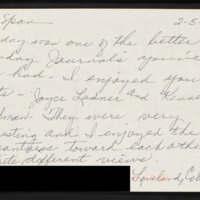 Span 2-5
day was one of the better
day Journals you've
had. I enjoyed you
ts - Joyce Ladner and
lman. They were very
esting and I enjoyed the
santness toward each othe
ite different views.
Loveland, Col